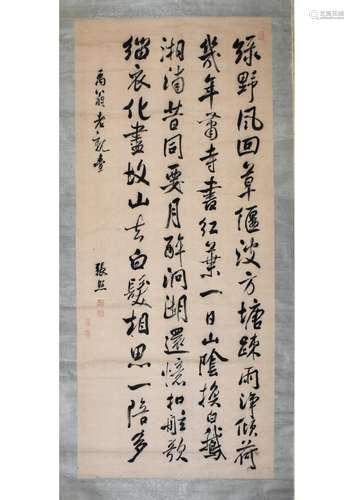 綠野風回草偃波方塘疎雨淨傾荷
幾年蕭寺書紅葉一日山陰換白鵝
湘浦昔同要月醉洞湖還憶扣舷歌
緇衣化盡故山去白髮相思一陪多
禹翁老親臺
張照